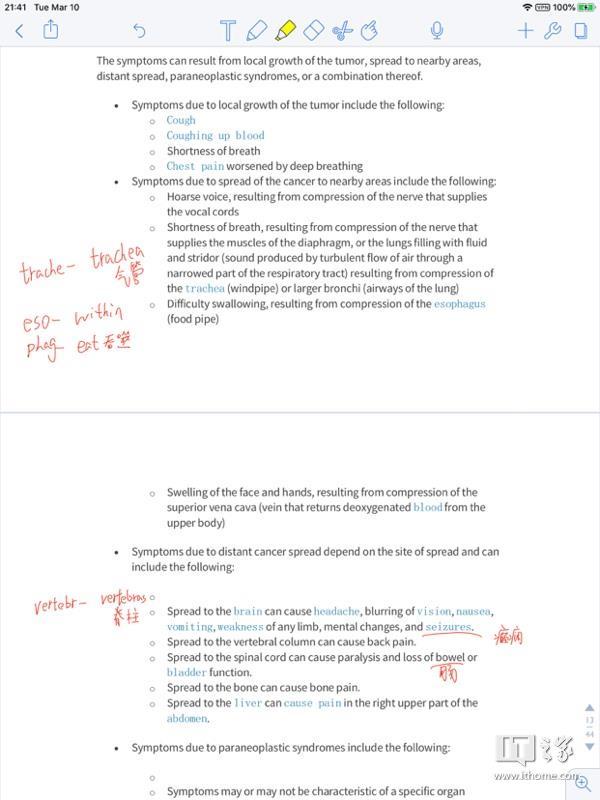 21:41 Tue Mar 10
VPN 100%
The symptoms can result from local growth of the tumor, spread to nearby areas,
distant spread, paraneoplastic syndromes, or a combination thereof.
• Symptoms due to local growth of the tumor include the following:
○ Cough
○ Coughing up blood
○ Shortness of breath
○ Chest pain worsened by deep breathing
• Symptoms due to spread of the cancer to nearby areas include the following:
○ Hoarse voice, resulting from compression of the nerve that supplies
the vocal cords
○ Shortness of breath, resulting from compression of the nerve that
supplies the muscles of the diaphragm, or the lungs filling with fluid
and stridor (sound produced by turbulent flow of air through a
narrowed part of the respiratory tract) resulting from compression of
the trachea (windpipe) or larger bronchi (airways of the lung)
trache- trachea
气管
○ Difficulty swallowing, resulting from compression of the esophagus
(food pipe)
eso- within
phag- eat 吞噬
○ Swelling of the face and hands, resulting from compression of the
superior vena cava (vein that returns deoxygenated blood from the
upper body)
• Symptoms due to distant cancer spread depend on the site of spread and can
include the following:
vertebr- vertebras
脊柱
○ Spread to the brain can cause headache, blurring of vision, nausea,
vomiting, weakness of any limb, mental changes, and seizures.
癫痫
○ Spread to the vertebral column can cause back pain.
○ Spread to the spinal cord can cause paralysis and loss of bowel or
bladder function.
○ Spread to the bone can cause bone pain.
○ Spread to the liver can cause pain in the right upper part of the
abdomen.
• Symptoms due to paraneoplastic syndromes include the following:
○ Symptoms may or may not be characteristic of a specific organ
13
44
IT之家
www.ithome.com